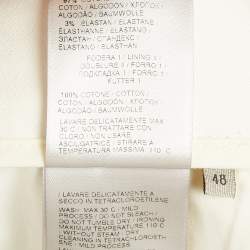 97%
COTTON / ALGODÓN / ХЛОПОК /
ALGODÃO / BAUMWOLLE
3% ELASTAN / ELASTANE
ELASTHANNE / ELASTANO
ЭЛАСТАН / СПАНДЕКС /
ELASTANO / ELASTHAN
FODERA 1 / LINING 1 /
DOUBLURE 1 / FORRO 1 /
ПОДКЛАДКА 1 / FORRO 1
FUTTER 1
100% COTONE / COTTON /
COTON / ALGODÓN / ХЛОПОК /
ALGODÃO / BAUMWOLLE
LAVARE DELICATAMENTE A
MAX 30 C / NON TRATTARE CON
CLORO / NON USARE
ASCIUGATRICE / STIRARE A
TEMPERATURA MASSIMA 110 C
/ LAVARE DELICATAMENTE A
SECCO IN TETRACLOROETILENE
WASH MAX 30 C - MILD
PROCESS / DO NOT BLEACH /
DO NOT TUMBLE DRY / IRONING
MAXIMUM TEMPERATURE 110 C
WITHOUT STEAM / DRY
CLEANING IN TETRACHLORO
MILD PROCESS
48